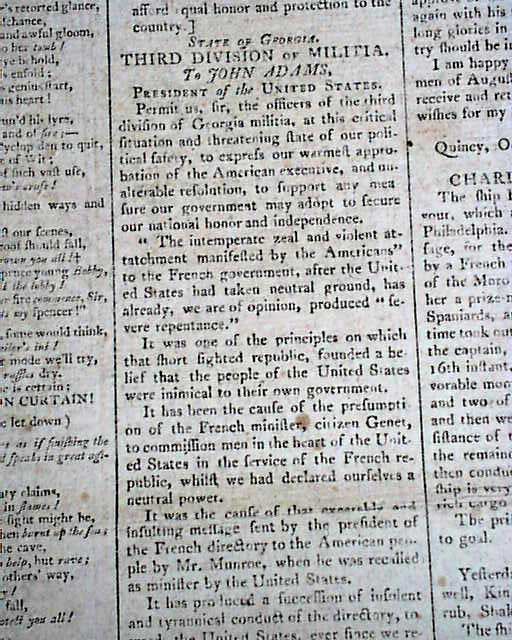 's retorted glance,
and awful gloom,
ye behold,
is enfold;
genius start,
his heart!
un'd his lyre,
and of fire;—
Cyclop den to quit,
e of Wit;
f such vast use,
hidden ways and
our scenes,
roof should fall,
you all!
young Bobby,
the lobby!
fire, Sir,
my spencer!"
some would think,
mode we'll try,
ruffles dry.
is certain:
ON CURTAIN!
let down)
as if finishing the
speaks in great agi-
claims,
in flames!
fight might be,
burnt up the sea;
he cave,
help, but rave;
others' way,
fall,
you all!
afford equal honor and protection to the
country.]
State of Georgia.
THIRD DIVISION of MILITIA.
To JOHN ADAMS,
President of the United States.
Permit us, sir, the officers of the third
division of Georgia militia, at this critical
situation and threatening state of our poli-
tical safety, to express our warmest appro-
bation of the American executive, and un-
alterable resolution, to support any mea
sure our government may adopt to secure
our national honor and independence.
" The intemperate zeal and violent at-
tatchment manifested by the Americans"
to the French government, after the Unit-
ed States had taken neutral ground, has
already, we are of opinion, produced "se-
vere repentance."
It was one of the principles on which
that short sighted republic, founded a be-
lief that the people of the United States
were inimical to their own government.
It has been the cause of the presumpti-
on of the French minister, citizen Genet,
to commission men in the heart of the Unit-
ed States in the service of the French re-
public, whilst we had declared ourselves a
neutral power.
It was the cause of that execrable and
insulting message sent by the president of
the French directory to the American peo-
ple by Mr. Munroe, when he was recalled
as minister by the United States.
It has produced a succession of insolent
and tyrannical conduct of the directory, to
the United States, ever since we re-
again with his
long glories in
try should be i
I am happy
men of August
receive and ret
wishes for my
Quincy, O
CHARL
The ship
your, which
Philadelphia.
sage, for the
by a French
of the Moro
her a prize-
Spaniards, a
time took out
the captain,
16th instant.
vorable mom
and two of
and then we
sistance of t
the remaind
then conduc
ship is very
rich cargo
The pri
to goal.
Yesterd
well, Kin
rub, Shak
The sh